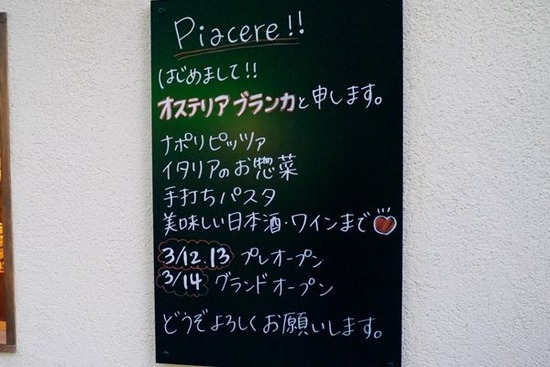 Piacere!!
はじめまして!!
オステリア ブランカと申します。
ナポリピッツァ
イタリアのお惣菜
手打ちパスタ
美味しい日本酒・ワインまで
3/12.13 プレオープン
3/14 グランドオープン
どうぞよろしくお願いします。